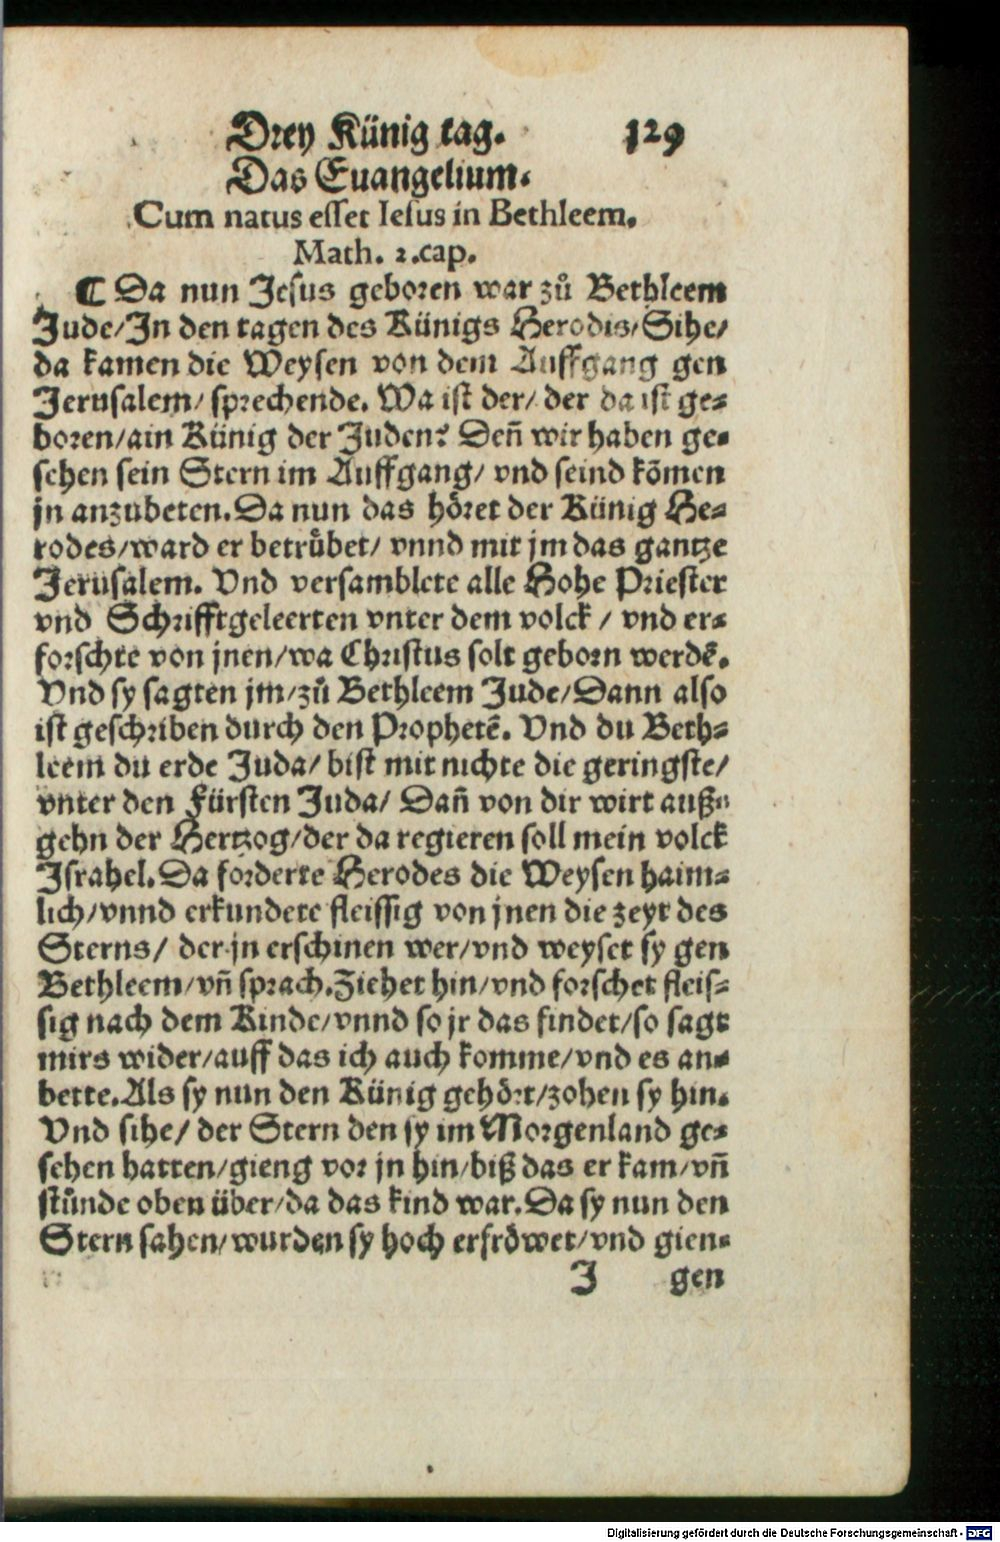 Drey Künig tag. 129
Das Euangelium.
Cum natus esset Iesus in Bethleem.
Math. 2.cap.
¶ Da nun Jesus geboren war zů Bethleem
Jude/In den tagen des Künigs Herodis/Sihe/
da kamen die Weysen von dem Auffgang gen
Jerusalem/ sprechende. Wa ist der/ der da ist ge-
boren/ain Künig der Juden? Deñ wir haben ge-
sehen sein Stern im Auffgang/ vnd seind kõmen
jn anzubeten.Da nun das höret der Künig He-
rodes/ward er betrůbet/ vnnd mit jm das gantze
Jerusalem. Vnd versamblete alle Hohe Priester
vnd Schrifftgeleerten vnter dem volck / vnd er-
forschte von jnen/wa Christus solt geborn werdẽ.
Vnd sy sagten jm/zů Bethleem Jude/Dann also
ist geschriben durch den Prophetẽ. Vnd du Beth-
leem du erde Juda/ bist mit nichte die geringste/
vnter den Fürsten Juda/ Dañ von dir wirt auß-
gehn der Hertzog/der da regieren soll mein volck
Israhel.Da forderte Herodes die Weysen haim-
lich/vnnd erkundete fleissig von jnen die zeyt des
Sterns/ der jn erschinen wer/vnd weyset sy gen
Bethleem/vñ sprach.Ziehet hin/vnd forschet fleis-
sig nach dem Kinde/vnnd so jr das findet/so sagt
mirs wider/auff das ich auch komme/vnd es an-
bette.Als sy nun den Künig gehört/zohen sy hin.
Vnd sihe/ der Stern den sy im Morgenland ge-
sehen hatten/gieng vor jn hin/biß das er kam/vñ
stůnde oben über/da das kind war.Da sy nun den
Stern sahen/wurden sy hoch erfröwet/vnd gien-
J gen
Digitalisierung gefördert durch die Deutsche Forschungsgemeinschaft - DFG